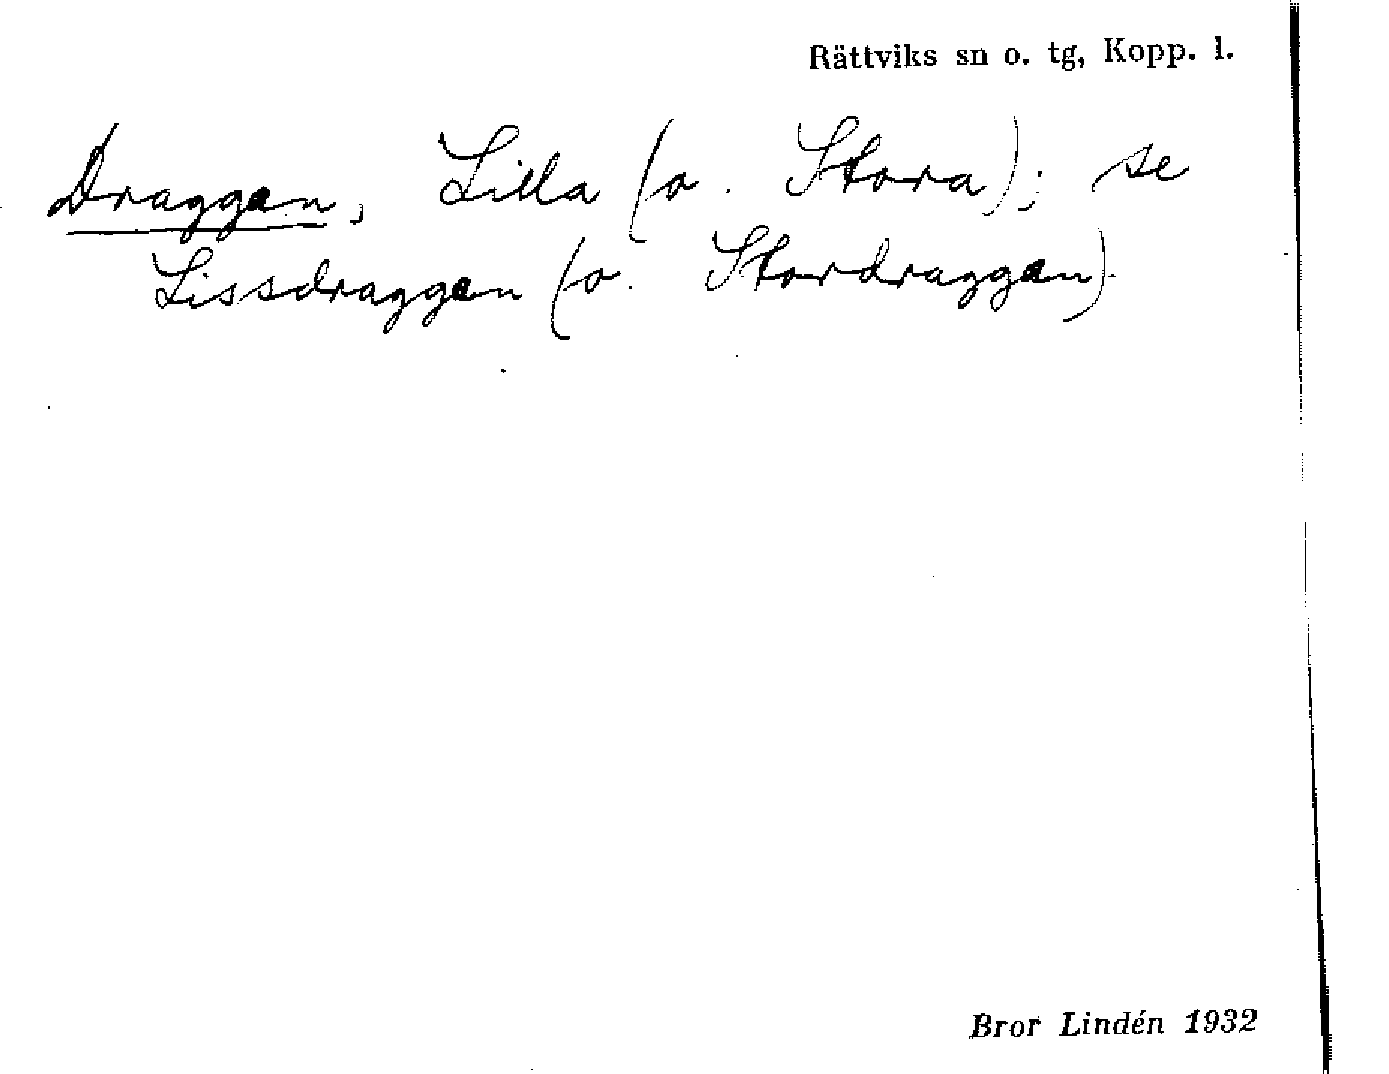 Rättviks sn o. tg, Kopp. l.
Draggen, Lilla (o. Stora); se
Lissdraggen (o. Stordraggen).
Bror Lindén 1932